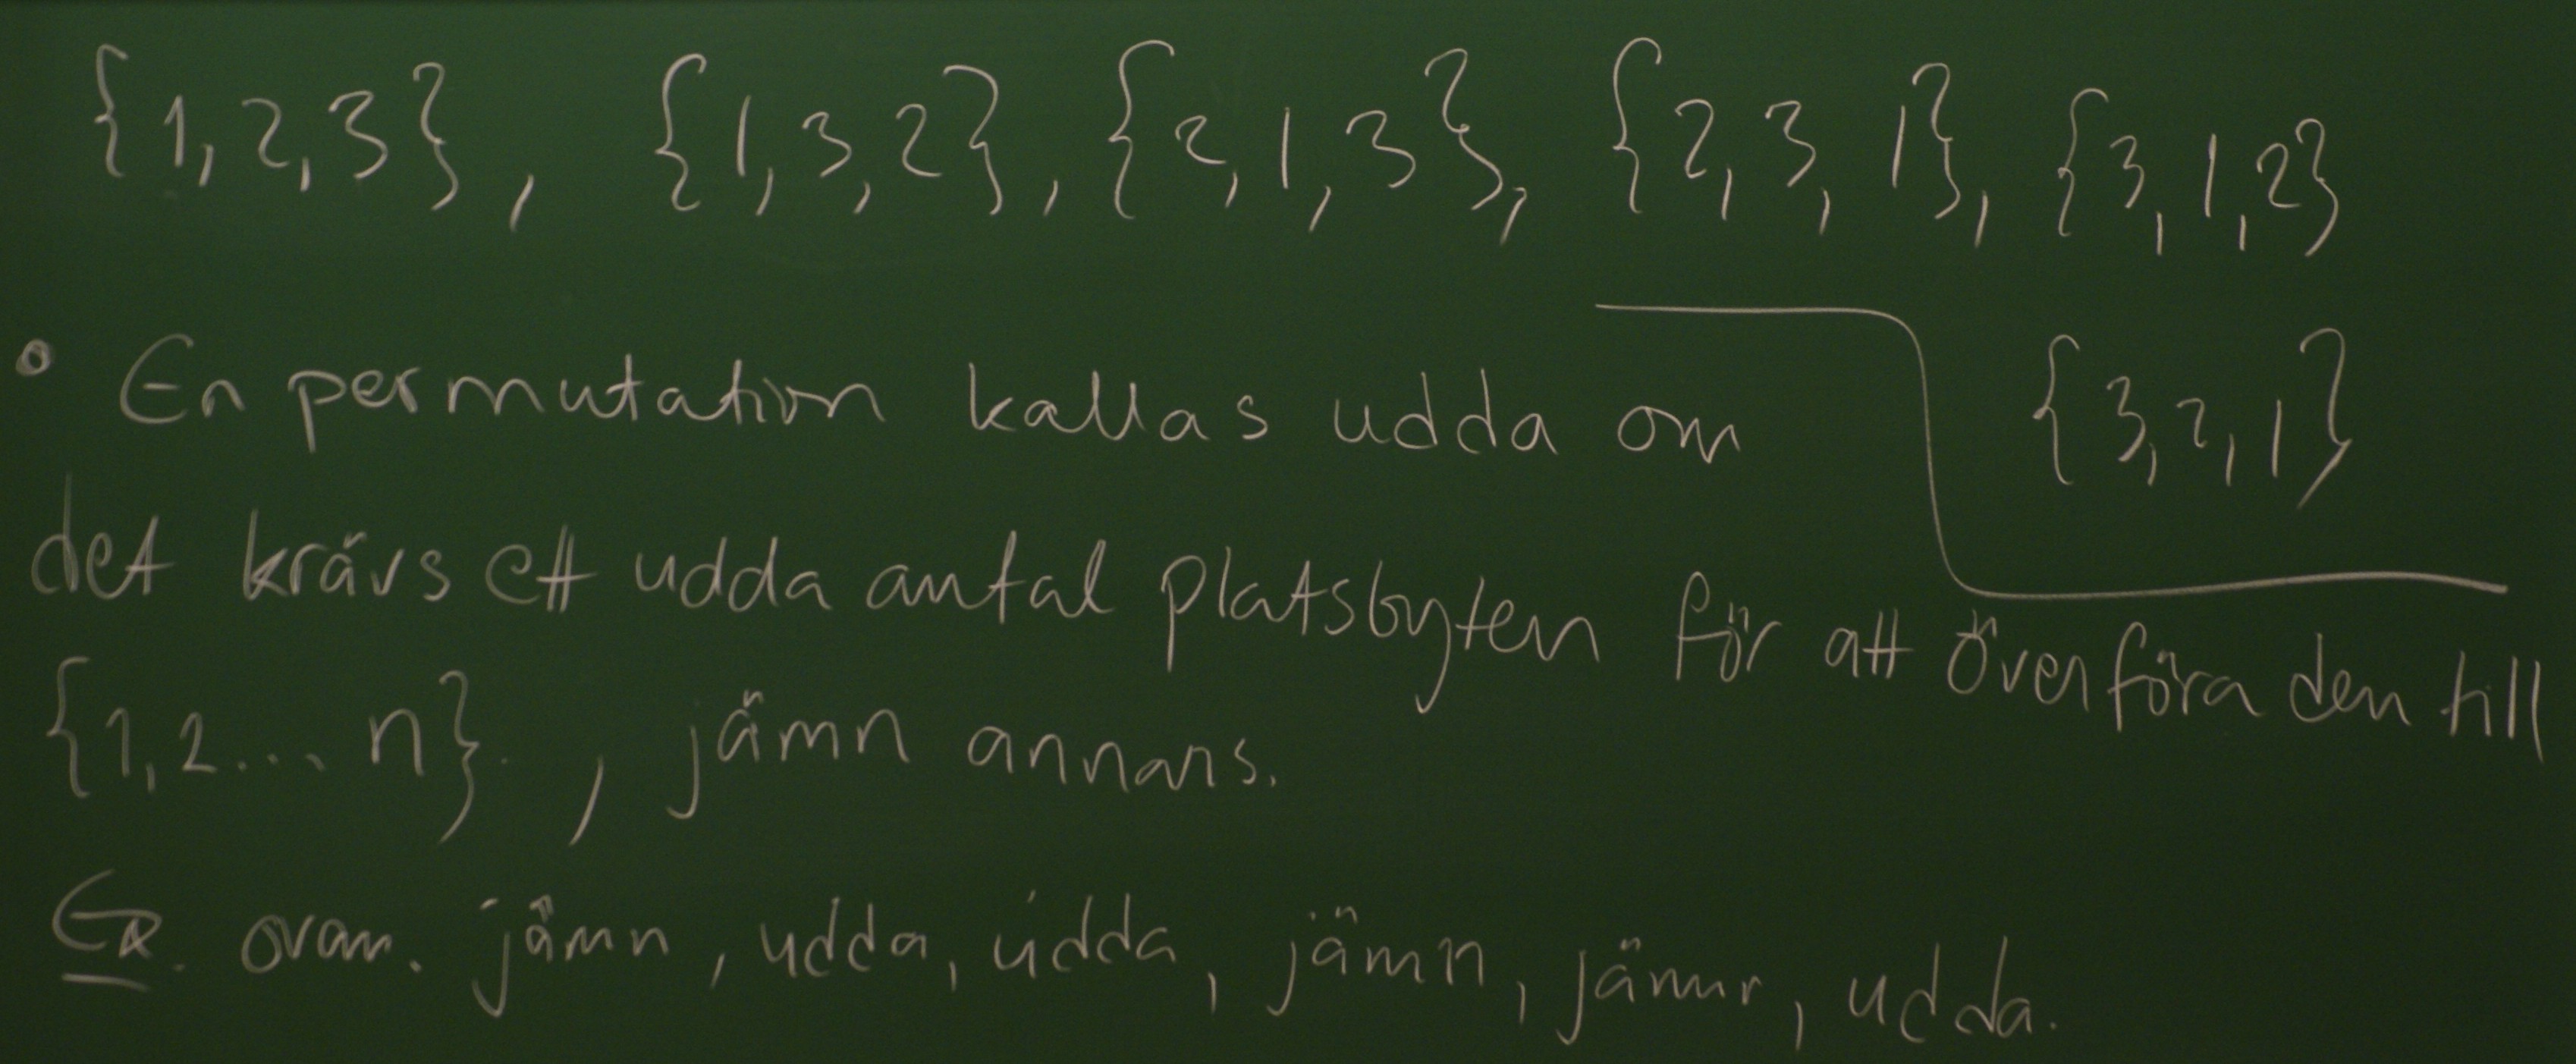 {1,2,3}, {1,3,2}, {2,1,3}, {2,3,1}, {3,1,2}
{3,2,1}
• En permutation kallas udda om
det krävs ett udda antal platsbyten för att överföra den till
{1,2... n}. , jämn annars.
Ex. ovan. jämn, udda, udda, jämn, jämn, udda.